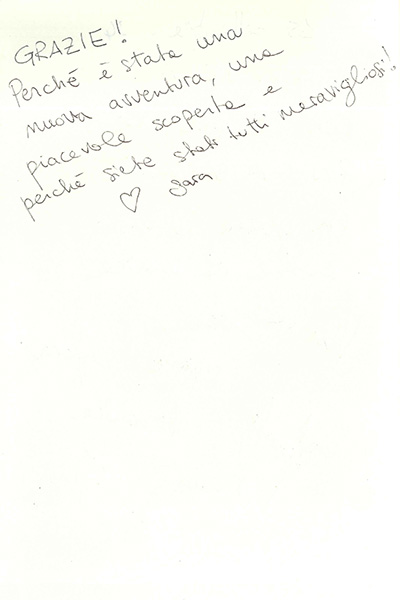 GRAZIE!
Perché è stata una
nuova avventura, una
piacevole scoperta e
perché siete stati tutti meravigliosi!!
♡ Sara